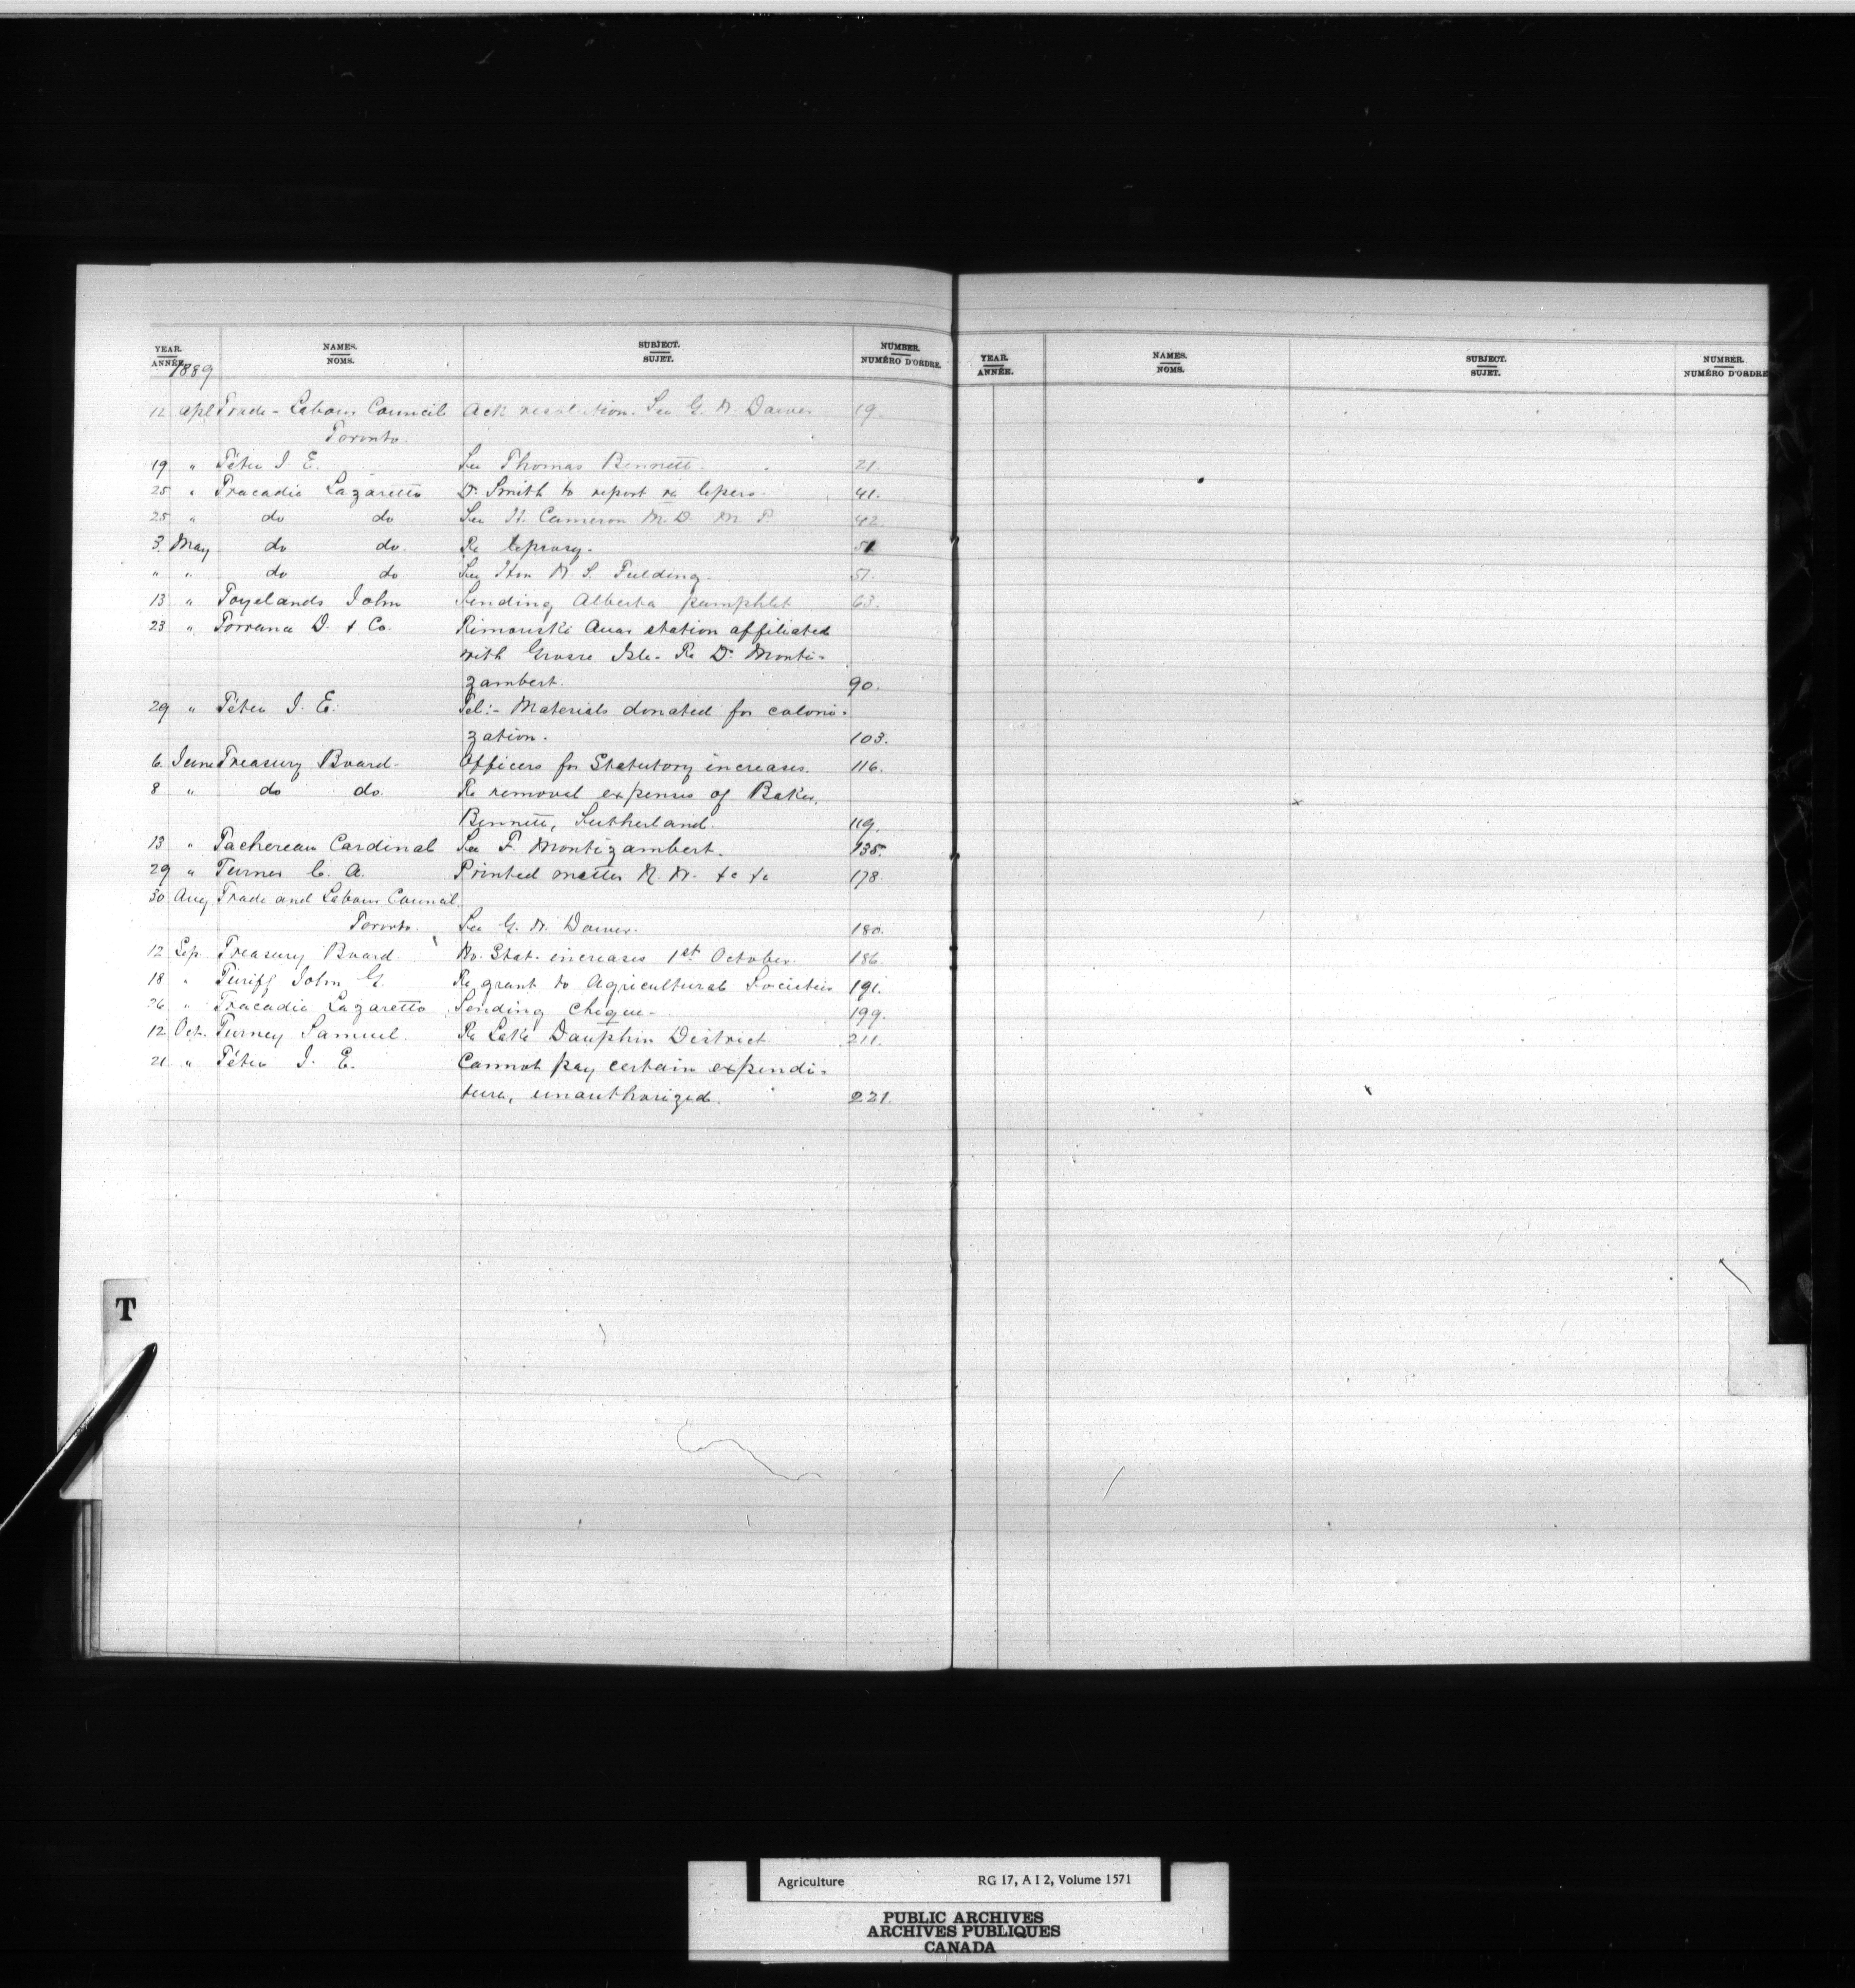 YEAR. NAMES. SUBJECT. NUMBER.
ANNÉE. NOMS. SUJET. NUMÉRO D'ORDRE.
1889
12 Apl Trade - Labour Council Ack resolution. See G. W. Dower 19.
Toronto.
19 " Têtu J. E. See Thomas Bennett. 21.
25 " Tracadie Lazaretto Dr. Smith to report re lepers. 41.
25 " do do See H. Cameron M.D. M.P. 42.
3. May do do. Re leprosy. 51
" " do do See Hon W. S. Fielding. 51.
13 " Toyelands John Sending Alberta pamphlet 63.
23 " Torrance D. & Co. Rimouski Quar station affiliated
with Grosse Isle. Re Dr. Monti-
zambert. 90.
29 " Têtu J. E. Tel:- Materials donated for coloni-
zation. 103.
6. June Treasury Board- Officers for Statutory increases. 116.
8 " do do. Re removal expenses of Baker,
Bennett, Sutherland. 119.
13 " Tachereau Cardinal See F. Montizambert. 135.
29 " Turner C. A. Printed matter N. W. &c &c 178.
30 Aug. Trade and Labour Council.
Toronto. See G. W. Dower. 180.
12 Sep. Treasury Board. No. Stat. increases 1st October. 186.
18 " Turiff John G. Re grant to Agricultural Societies 191.
26 " Tracadie Lazaretto Sending cheque- 199.
12 Oct. Turney Samuel. Re Lake Dauphin District. 211.
21 " Têtu J. E. Cannot pay certain expendi-
ture, unauthorized. 221.
T
YEAR. NAMES. SUBJECT. NUMBER.
ANNÉE. NOMS. SUJET. NUMÉRO D'ORDRE
Agriculture RG 17, A I 2, Volume 1571
PUBLIC ARCHIVES
ARCHIVES PUBLIQUES
CANADA